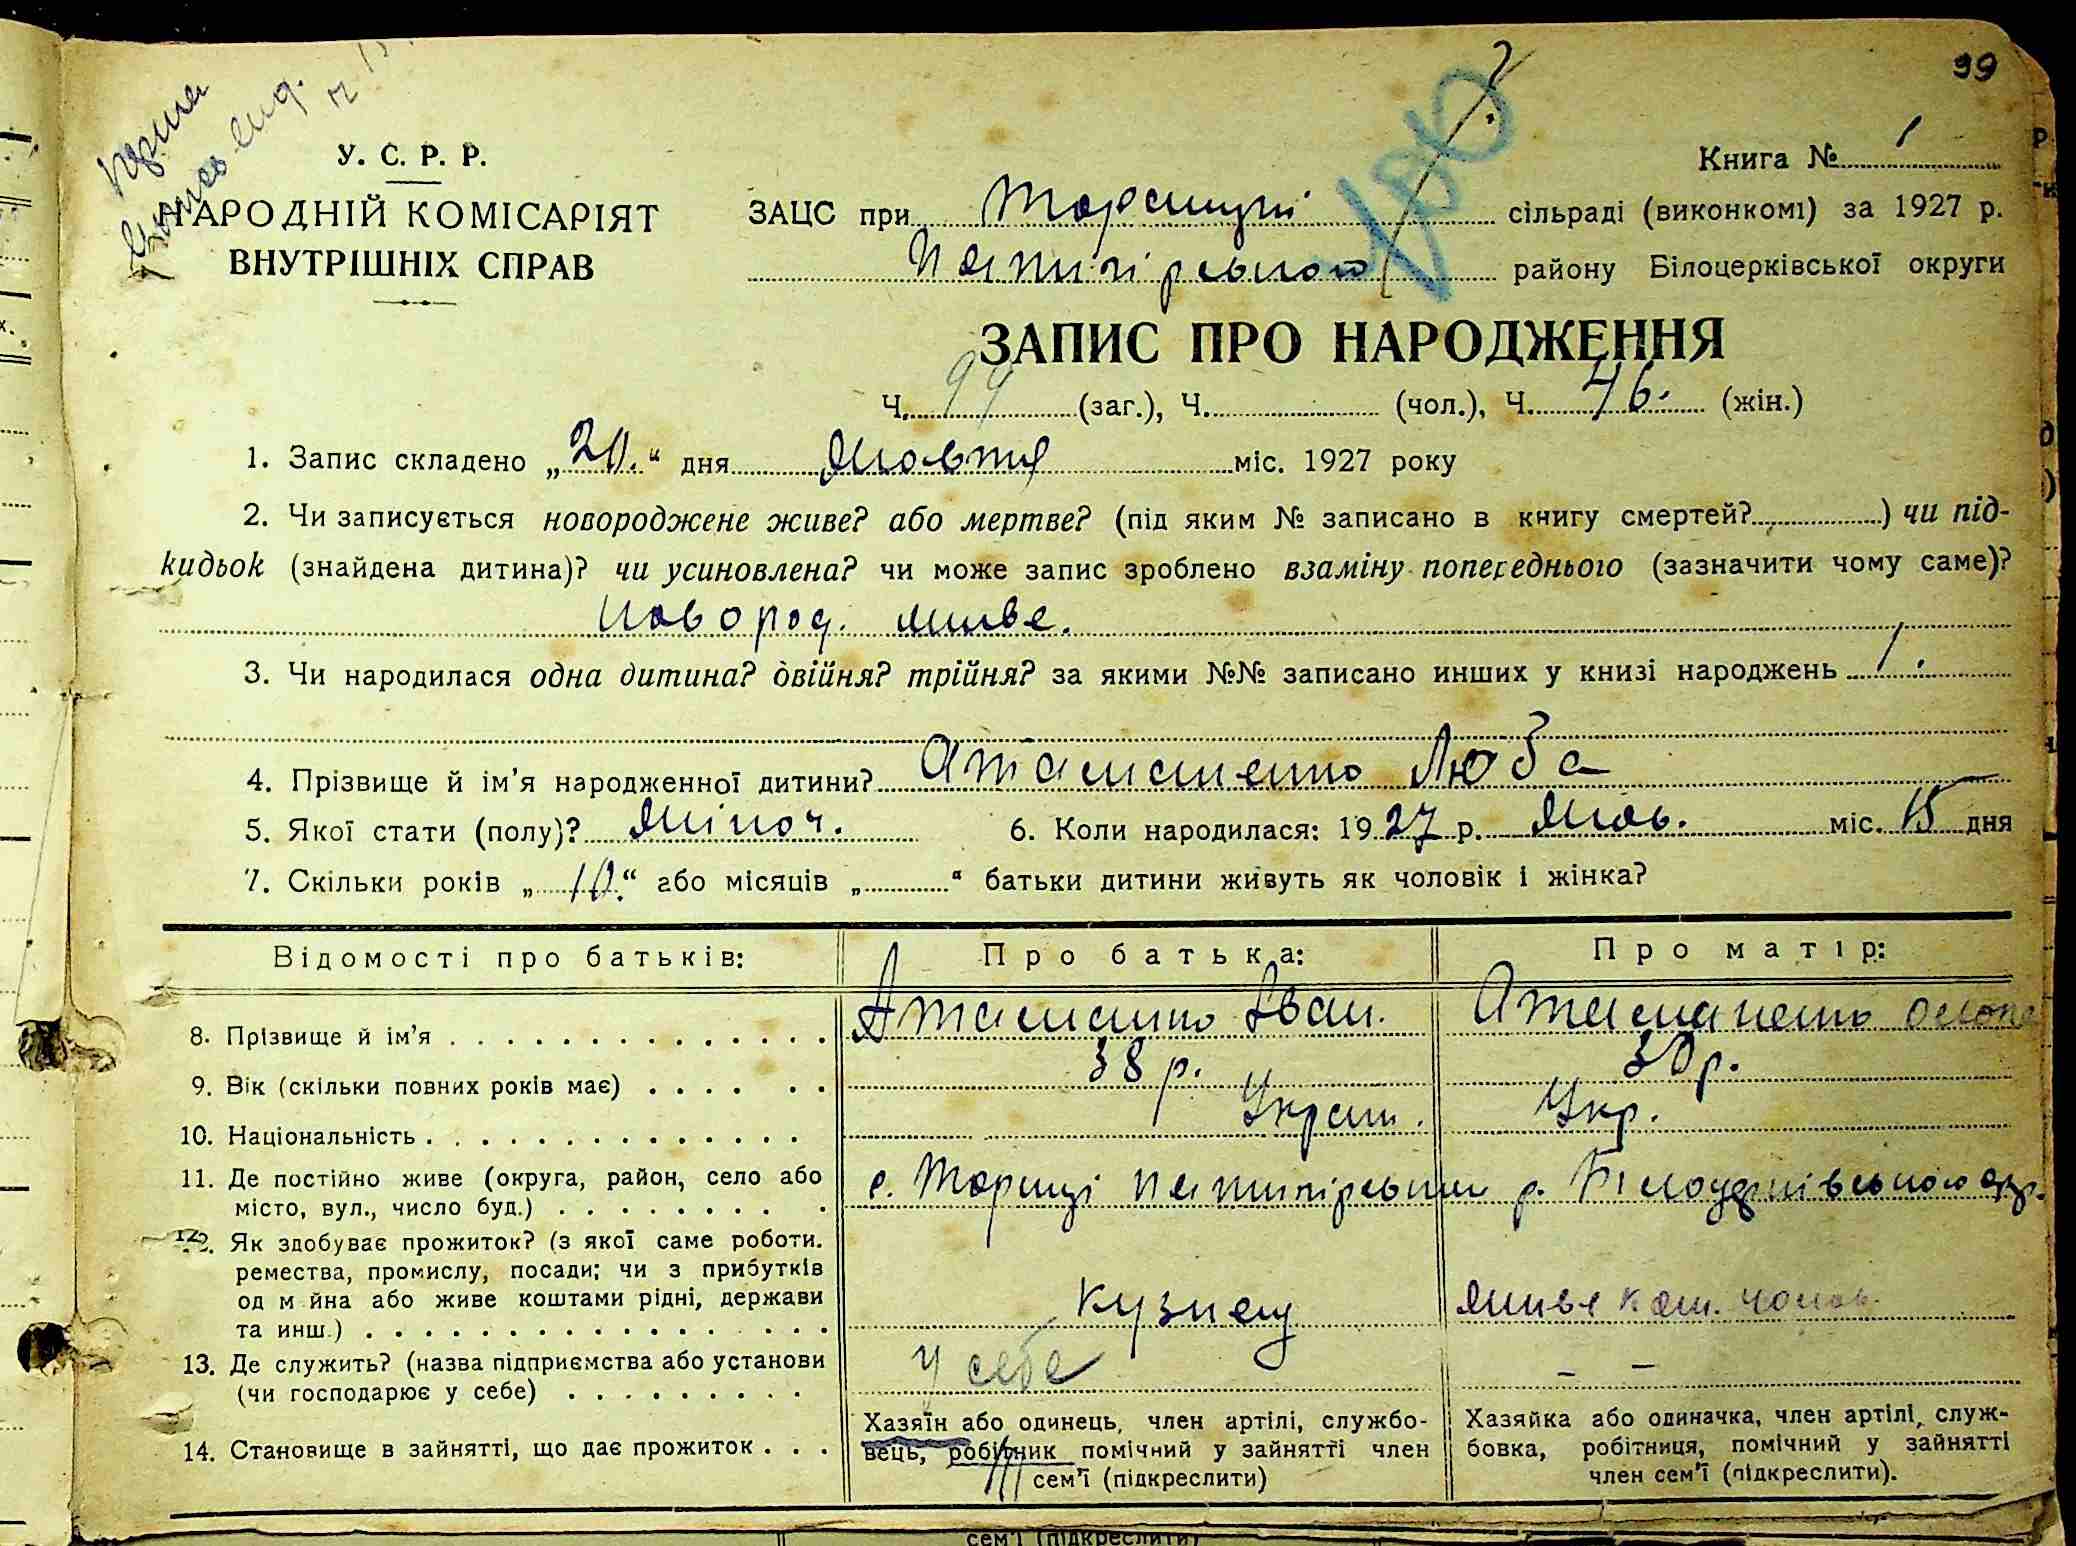 99
У. С. Р. Р.
НАРОДНІЙ КОМІСАРІЯТ
ВНУТРІШНІХ СПРАВ
Книга № 1
ЗАЦС при Торчицькій сільраді (виконкомі) за 1927 р.
Пятигірського району Білоцерківської округи
ЗАПИС ПРО НАРОДЖЕННЯ
Ч. 94 (заг.), Ч. (чол.), Ч. 46. (жін.)
1. Запис складено „20.“ дня Жовтня міс. 1927 року
2. Чи записується новороджене живе? або мертве? (під яким № записано в книгу смертей? ) чи під-
кидьок (знайдена дитина)? чи усиновлена? чи може запис зроблено взаміну попереднього (зазначити чому саме)?
Новород. живе.
3. Чи народилася одна дитина? двійня? трійня? за якими №№ записано инших у книзі народжень 1.
4. Прізвище й ім’я народженної дитини? Атаманенко Люба
5. Якої стати (полу)? Жіноч. 6. Коли народилася: 1927 р. Жов. міс. 15 дня
7. Скільки років „10.“ або місяців „ “ батьки дитини живуть як чоловік і жінка?
Відомості про батьків: Про батька: Про матір:
8. Прізвище й ім’я Атаманенко Іван. Атаманенко
9. Вік (скільки повних років має) 38 р. 30 р.
10. Національність Украін. Укр.
11. Де постійно живе (округа, район, село або
місто, вул., число буд.) с. Торчиці Пятигірськ р. Білоцерківського окр.
12. Як здобуває прожиток? (з якої саме роботи.
ремества, промислу, посади; чи з прибутків
од м йна або живе коштами рідні, держави
та инш.) Кузнец живе кош. чолов.
13. Де служить? (назва підприємства або установи
(чи господарює у себе) у себе – –
14. Становище в зайнятті, що дає прожиток
Хазяїн або одинець, член артілі, службо-
вець, робітник помічний у зайнятті член
сем’ї (підкреслити)
Хазяйка або одиначка, член артілі, служ-
бовка, робітниця, помічний у зайнятті
член сем’ї (підкреслити).
сем’ї (підкреслити)